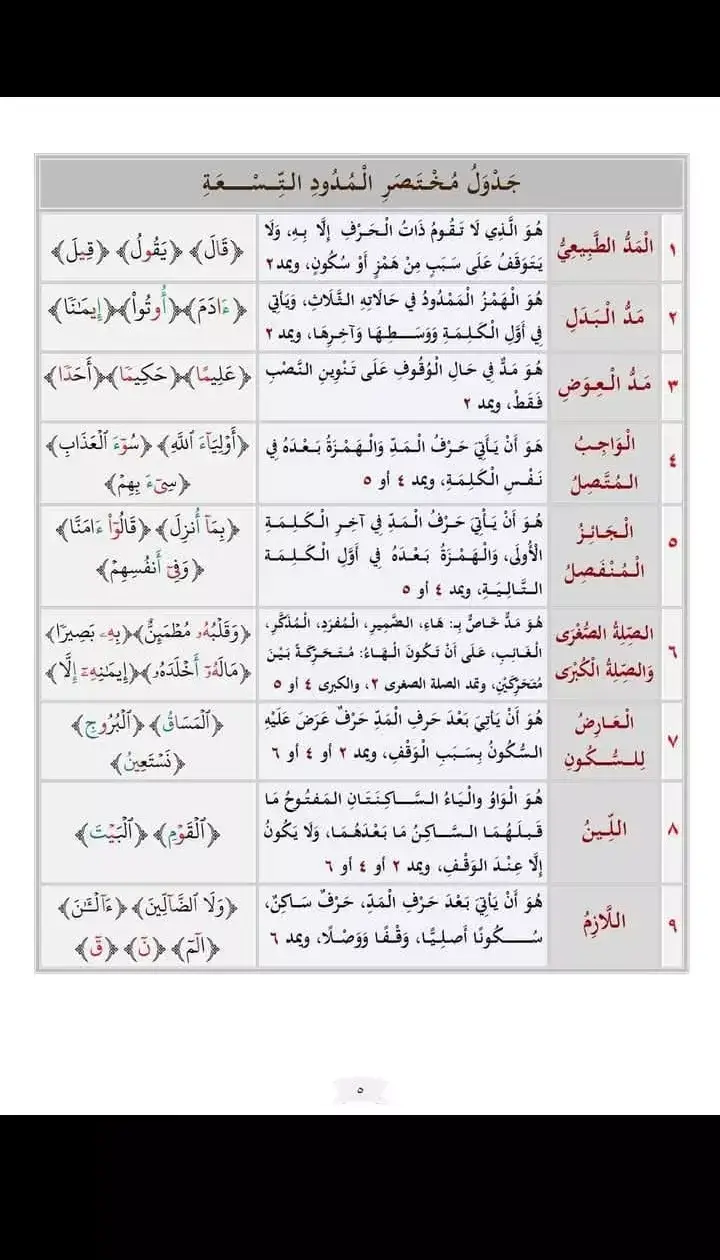 جَدْوَلُ مُخْتَصَرِ الْمُدُودِ التِّسْعَةِ
١
الْمَدُّ الطَّبِيعِيُّ
هُوَ الَّذِي لَا تَقُومُ ذَاتُ الْحَرْفِ إِلَّا بِهِ، وَلَا
يَتَوَقَّفُ عَلَى سَبَبٍ مِنْ هَمْزٍ أَوْ سُكُونٍ، ويمد ٢
﴿قَالَ﴾ ﴿يَقُولُ﴾ ﴿قِيلَ﴾
٢
مَدُّ الْبَدَلِ
هُوَ الْهَمْزُ الْمَمْدُودُ فِي حَالَاتِهِ الثَّلَاثِ، وَيَأْتِي
فِي أَوَّلِ الْكَلِمَةِ وَوَسَطِهَا وَآخِرِهَا، ويمد ٢
﴿ءَادَمَ﴾ ﴿أُوتُواْ﴾ ﴿إِيمَٰنًا﴾
٣
مَدُّ الْعِوَضِ
هُوَ مَدٌّ فِي حَالِ الْوُقُوفِ عَلَى تَنْوِينِ النَّصْبِ
فَقَطْ، ويمد ٢
﴿عَلِيمًا﴾ ﴿حَكِيمًا﴾ ﴿أَحَدًا﴾
٤
الْوَاجِبُ
الْمُتَّصِلُ
هُوَ أَنْ يَأْتِيَ حَرْفُ الْمَدِّ وَالْهَمْزَةُ بَعْدَهُ فِي
نَفْسِ الْكَلِمَةِ، ويمد ٤ أو ٥
﴿أَوْلِيَآءَ اللَّهِ﴾ ﴿سُوٓءَ ٱلْعَذَابِ﴾
﴿سِيٓءَ بِهِمْ﴾
٥
الْجَائِزُ
الْمُنْفَصِلُ
هُوَ أَنْ يَأْتِيَ حَرْفُ الْمَدِّ فِي آخِرِ الْكَلِمَةِ
الْأُولَى، وَالْهَمْزَةُ بَعْدَهُ فِي أَوَّلِ الْكَلِمَةِ
التَّالِيَةِ، ويمد ٤ أو ٥
﴿بِمَآ أُنزِلَ﴾ ﴿قَالُوٓاْ ءَامَنَّا﴾
﴿وَفِيٓ أَنفُسِهِمْ﴾
٦
الصِّلَةُ الصُّغْرَى
وَالصِّلَةُ الْكُبْرَى
هُوَ مَدٌّ خَاصٌّ بِـ: هَاءِ، الضَّمِيرِ، الْمُفْرَدِ، الْمُذَكَّرِ،
الْغَائِبِ، عَلَى أَنْ تَكُونَ الْهَاءُ: مُتَحَرِّكَةً بَيْنَ
مُتَحَرِّكَيْنِ، وتمد الصلة الصغرى ٢، والكبرى ٤ أو ٥
﴿وَقَلْبُهُۥ مُطْمَئِنٌّ﴾ ﴿بِهِۦ بَصِيرًا﴾
﴿مَالَهُۥٓ أَخْلَدَهُۥ﴾ ﴿إِيمَٰنِهِۦٓ إِلَّا﴾
٧
الْعَارِضُ
لِلسُّكُونِ
هُوَ أَنْ يَأْتِيَ بَعْدَ حَرفِ الْمَدِّ حَرْفٌ عَرَضَ عَلَيْهِ
السُّكُونُ بِسَبَبِ الْوَقْفِ، ويمد ٢ أو ٤ أو ٦
﴿ٱلْمَسَاقُ﴾ ﴿ٱلْبُرُوجِ﴾
﴿نَسْتَعِينُ﴾
٨
اللِّينُ
هُوَ الْوَاوُ وَالْيَاءُ السَّاكِنَتَانِ الْمَفْتُوحُ مَا
قَبْلَهُمَا السَّاكِنُ مَا بَعْدَهُمَا، وَلَا يَكُونُ
إِلَّا عِنْدَ الْوَقْفِ، ويمد ٢ أو ٤ أو ٦
﴿ٱلْقَوْمِ﴾ ﴿ٱلْبَيْتَ﴾
٩
اللَّازِمُ
هُوَ أَنْ يَأْتِيَ بَعْدَ حَرْفِ الْمَدِّ، حَرْفٌ سَاكِنٌ،
سُكُونًا أَصلِيًّا، وَقْفًا وَوَصْلًا، ويمد ٦
﴿وَلَا ٱلضَّآلِّينَ﴾ ﴿ءَآلْـَٰٔنَ﴾
﴿الٓمٓ﴾ ﴿نٓ﴾ ﴿قٓ﴾
٥